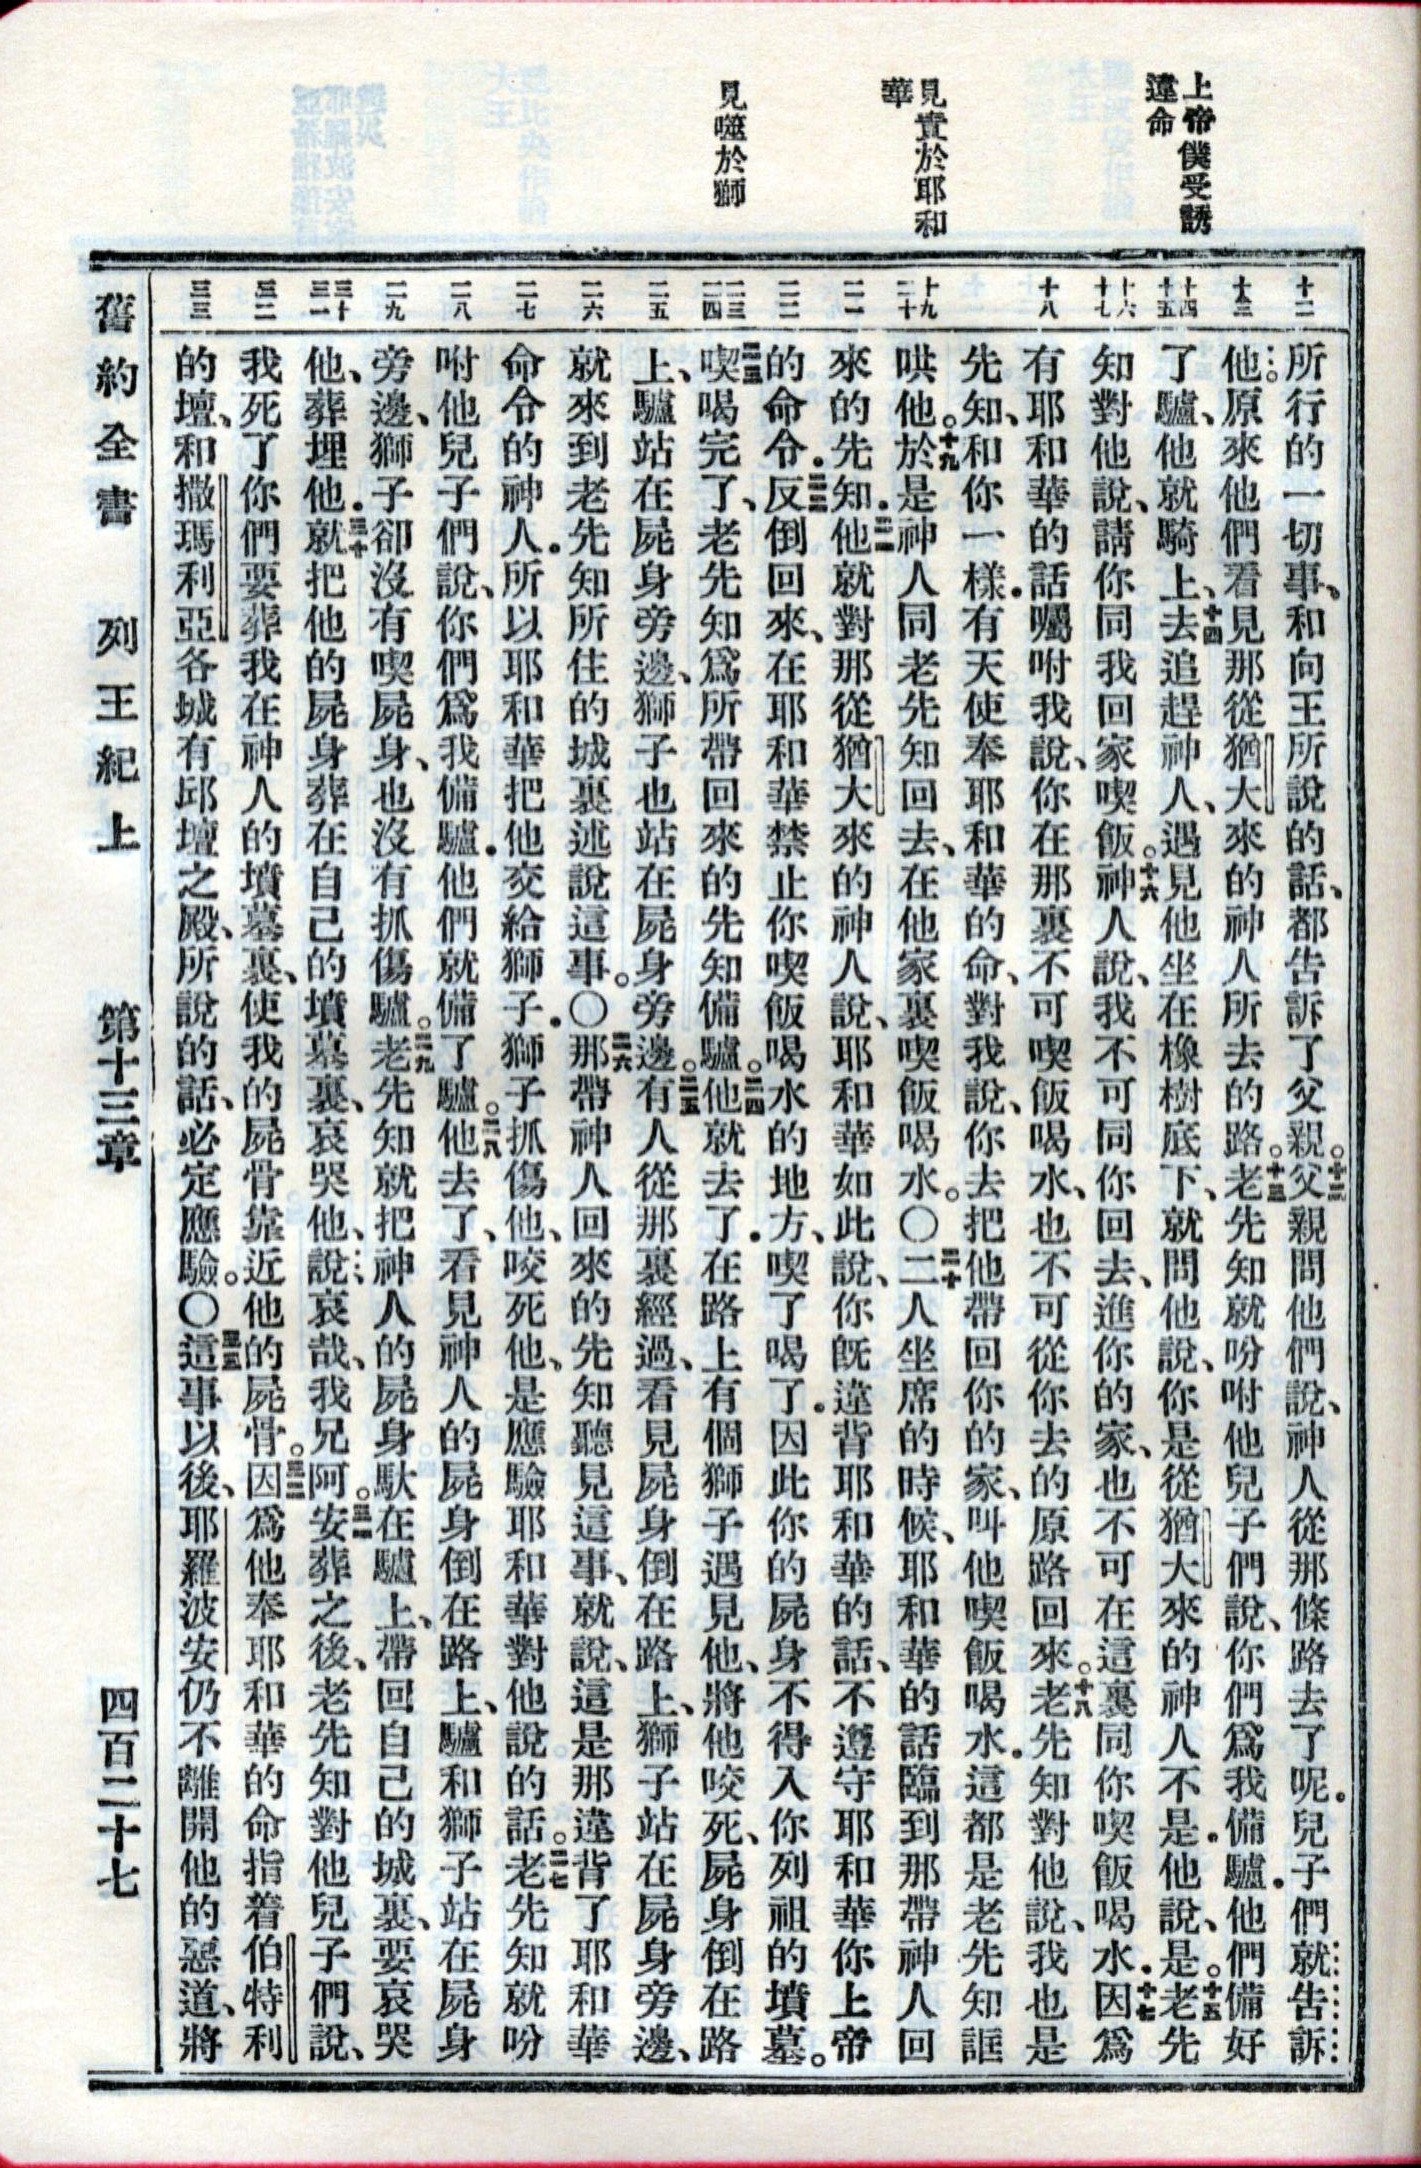 上帝僕受誘
違命
見責於耶和
華
見噬於獅
十二
十三
十四
十五
十六
十七
十八
十九
二十
二一
二二
二三
二四
二五
二六
二七
二八
二九
三十
三一
三二
三三
所行的一切事、和向王所說的話、都告訴了父親。十二父親問他們說、神人從那條路去了呢．兒子們就告訴
他。原來他們看見那從猶大來的神人所去的路。十三老先知就吩咐他兒子們說、你們爲我備驢．他們備好
了驢、他就騎上、十四去追趕神人、遇見他坐在橡樹底下、就問他說、你是從猶大來的神人不是．他說、是。十五老先
知對他說、請你同我回家喫飯。十六神人說、我不可同你回去、進你的家、也不可在這裏同你喫飯喝水．十七因爲
有耶和華的話囑咐我說、你在那裏不可喫飯喝水、也不可從你去的原路回來。十八老先知對他說、我也是
先知、和你一樣．有天使奉耶和華的命、對我說、你去把他帶回你的家、叫他喫飯喝水．這都是老先知誆
哄他。十九於是神人同老先知回去、在他家裏喫飯喝水。〇二十二人坐席的時候、耶和華的話臨到那帶神人回
來的先知．二一他就對那從猶大來的神人說、耶和華如此說、你旣違背耶和華的話、不遵守耶和華你上帝
的命令．二二反倒回來、在耶和華禁止你喫飯喝水的地方、喫了喝了．因此你的屍身不得入你列祖的墳墓。
二三喫喝完了、老先知爲所帶回來的先知備驢。二四他就去了．在路上有個獅子遇見他、將他咬死、屍身倒在路
上、驢站在屍身旁邊、獅子也站在屍身旁邊。二五有人從那裏經過、看見屍身倒在路上、獅子站在屍身旁邊、
就來到老先知所住的城裏述說這事。〇二六那帶神人回來的先知聽見這事、就說、這是那違背了耶和華
命令的神人．所以耶和華把他交給獅子．獅子抓傷他、咬死他、是應驗耶和華對他說的話。二七老先知就吩
咐他兒子們說、你們爲我備驢．他們就備了驢。二八他去了、看見神人的屍身倒在路上、驢和獅子站在屍身
旁邊、獅子卻沒有喫屍身、也沒有抓傷驢。二九老先知就把神人的屍身馱在驢上、帶回自己的城裏、要哀哭
他、葬埋他．三十就把他的屍身葬在自己的墳墓裏、哀哭他、說、哀哉、我兄阿。三一安葬之後、老先知對他兒子們說、
我死了你們要葬我在神人的墳墓裏、使我的屍骨靠近他的屍骨。三二因爲他奉耶和華的命指着伯特利
的壇、和撒瑪利亞各城有邱壇之殿、所說的話、必定應驗。〇三三這事以後、耶羅波安仍不離開他的惡道、將
舊約全書　列王紀上　第十三章　四百二十七